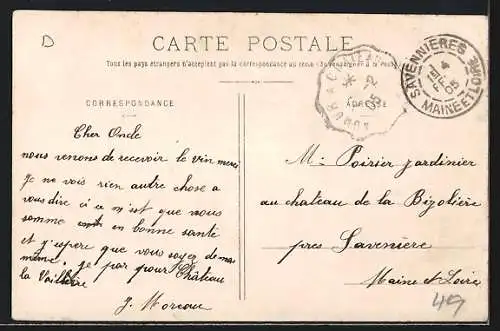 D
CARTE POSTALE
Tous les pays étrangers n'acceptent pas la correspondance au recto (se renseigner à la poste)
CORRESPONDANCE
ADRESSE
SAVENNIERES
4
FE
05
MAINE ET LOIRE
Cher Oncle
nous venons de recevoir le vin merci
je ne vois rien autre chose a
vous dire ici ce n'est que nous
somme en bonne santé
et j'espere que vous soyez de ma
meme. je par pour Château
la Vallière
J. Moreau
M: Poirier jardinier
au chateau de la Bizolière
pres Savenière
Maine et Loire
49